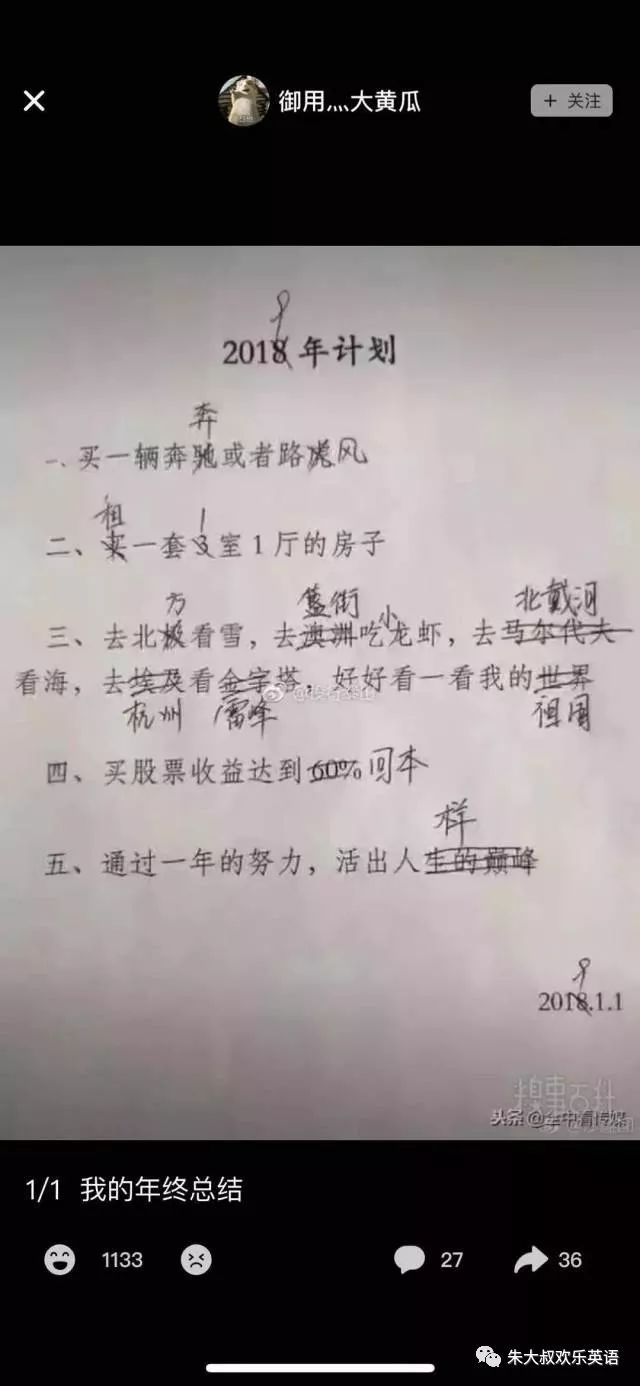 御用灬大黄瓜
+ 关注
9
2018年计划
奔
一、买一辆奔驰或者路虎风
租 1
二、买一套3室1厅的房子
方 簋街 小 北戴河
三、去北极看雪，去澳洲吃龙虾，去马尔代夫
看海，去埃及看金字塔，好好看一看我的世界
杭州 雷峰 祖国
四、买股票收益达到60%回本
样
五、通过一年的努力，活出人生的巅峰
9
2018.1.1
糗事百科
头条 @
1/1 我的年终总结
1133 27 36
朱大叔欢乐英语